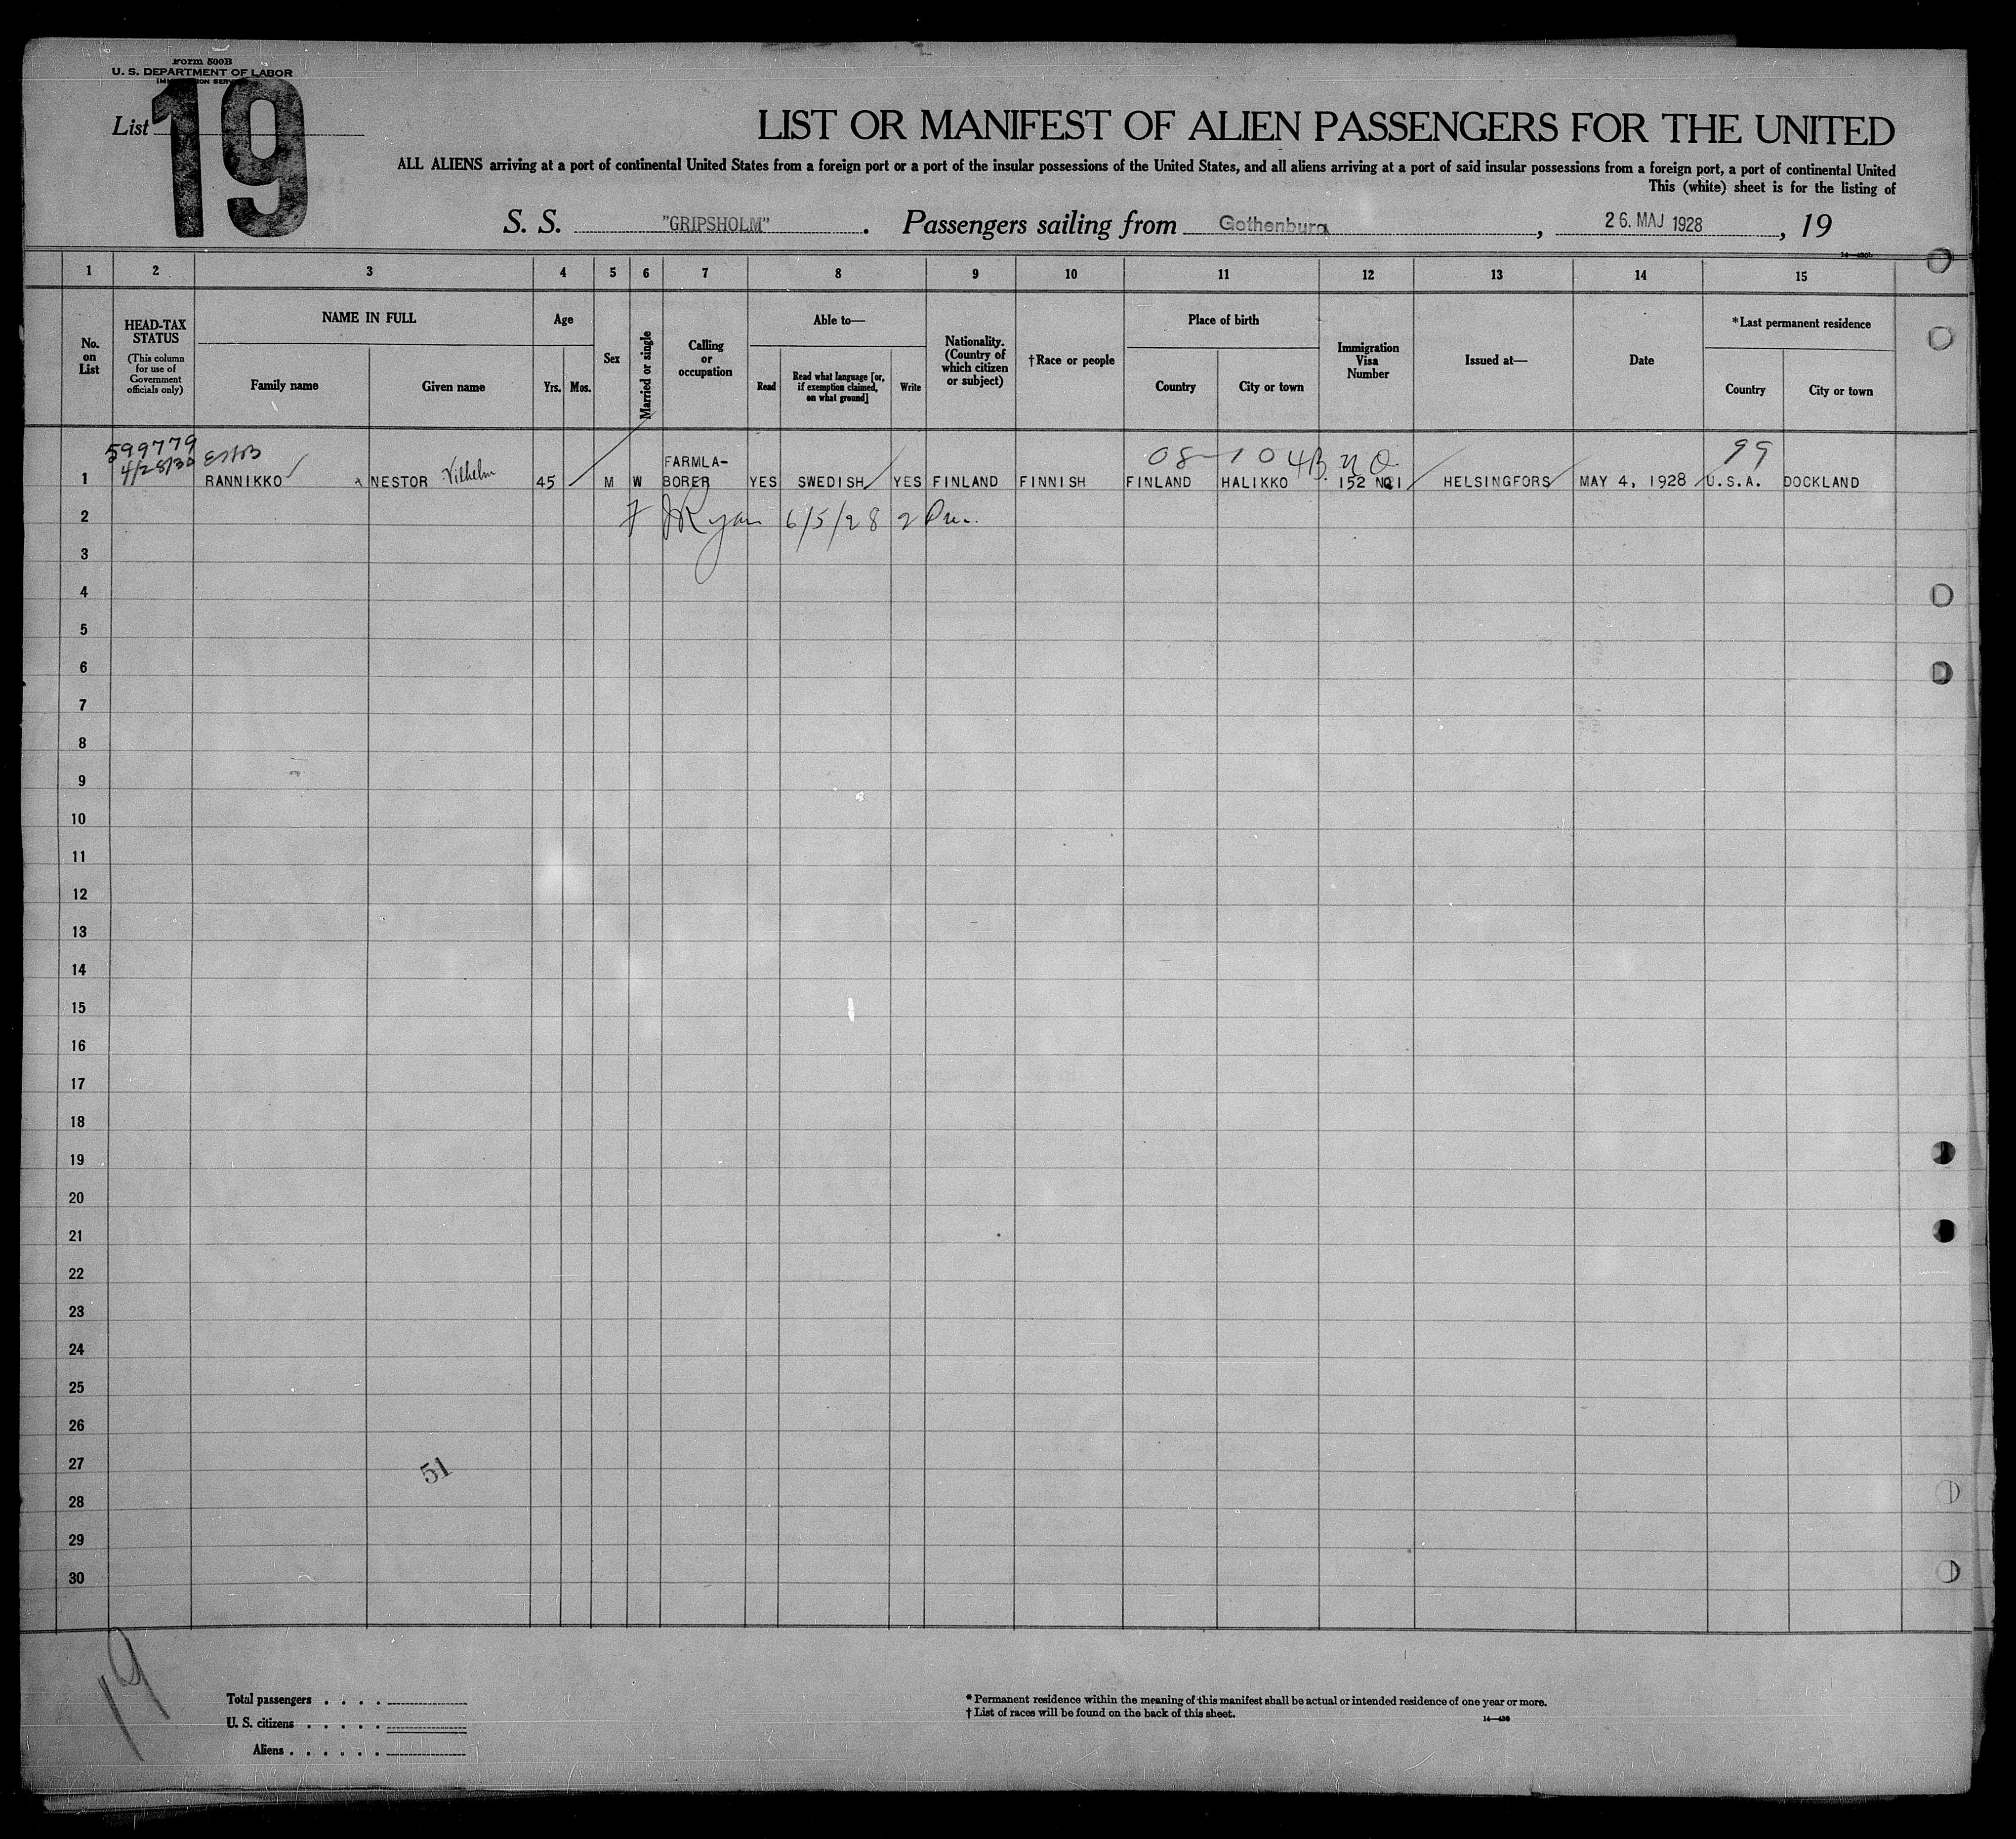 Form 500B
U. S. DEPARTMENT OF LABOR
List 19
LIST OR MANIFEST OF ALIEN PASSENGERS FOR THE UNITED
ALL ALIENS arriving at a port of continental United States from a foreign port or a port of the insular possessions of the United States, and all aliens arriving at a port of said insular possessions from a foreign port, a port of continental United
This (white) sheet is for the listing of
S. S. "GRIPSHOLM". Passengers sailing from Gothenburg, 26. MAJ 1928, 19
1 2 3 4 5 6 7 8 9 10 11 12 13 14 15
No. on List
HEAD-TAX STATUS
(This column for use of Government officials only)
NAME IN FULL
Family name
Given name
Age
Yrs.
Mos.
Sex
Married or single
Calling or occupation
Able to—
Read
Read what language [or, if exemption claimed, on what ground]
Write
Nationality. (Country of which citizen or subject)
†Race or people
Place of birth
Country
City or town
Immigration Visa Number
Issued at—
Date
*Last permanent residence
Country
City or town
599779
4/28/30
08-104B 99
1 RANNIKKO NESTOR Vilhelm 45 M W FARMLA-BORER YES SWEDISH YES FINLAND FINNISH FINLAND HALIKKO 152 HELSINGFORS MAY 4, 1928 U.S.A. DOCKLAND
2 Ryan 6/5/28
3
4
5
6
7
8
9
10
11
12
13
14
15
16
17
18
19
20
21
22
23
24
25
26
27
51
28
29
30
19
Total passengers . . . .
U. S. citizens . . . . .
Aliens . . . . . .
* Permanent residence within the meaning of this manifest shall be actual or intended residence of one year or more.
† List of races will be found on the back of this sheet.